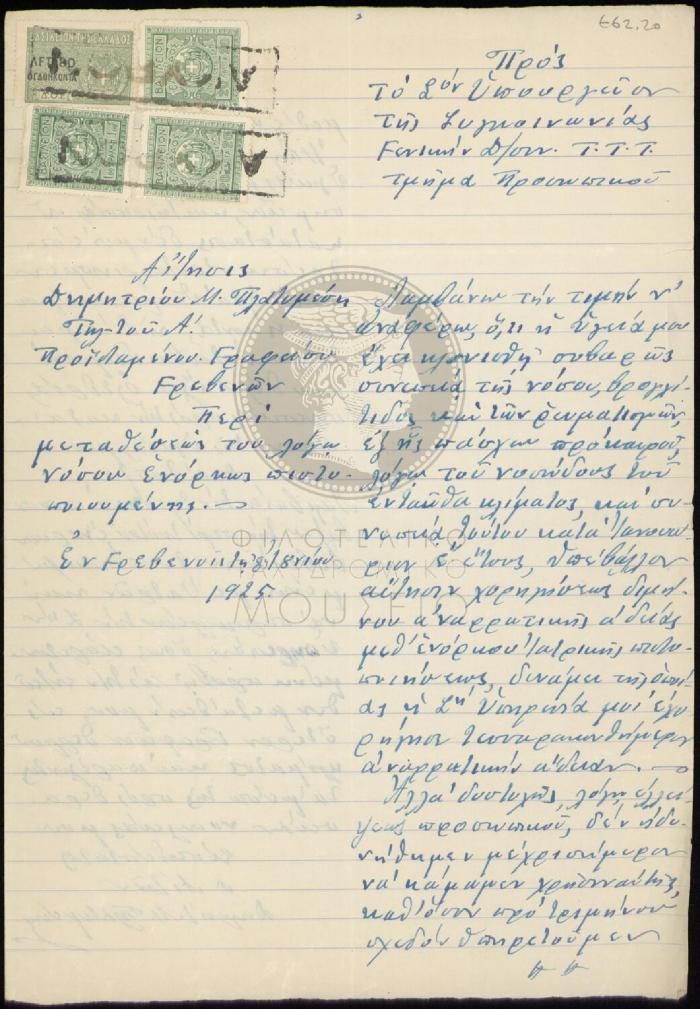 ε62.20
ΒΑΣΙΛΕΙΟΝ ΤΗΣ ΕΛΛΑΔΟΣ
ΛΕΠΤΑ 80
ΟΓΔΟΗΚΟΝΤΑ
Πρὸς
Τὸ Σὸν Ὑπουργεῖον
τῆς Συγκοινωνίας
Γενικὴν Δ/σιν. Τ.Τ.Τ.
τμῆμα Προσωπικοῦ
Αἴτησις
Δημητρίου Μ. Πλαταμέση
Τηλ-τοῦ Α΄.
Προϊσταμένου Γραφείου
Γρεβενῶν
Περὶ
μεταθέσεώς του λόγω
νόσου ἐνόρκως πιστο
ποιουμένης.
Ἐν Γρεβενοῖς τῇ 8 Ἰουνίου
1925.
Λαμβάνω τὴν τιμὴν ν'
ἀναφέρω, ὅτι ἡ ὑγεία μου
ἔχει κλονισθῆ σοβαρῶς
συνεπεία τῆς νόσου, βρογχί
τιδος καὶ τῶν ρευματισμῶν,
ἐξ ἧς πάσχω πρὸ καιροῦ,
λόγω τοῦ νοσώδους τοῦ
ἐνταῦθα κλίματος, καὶ συ
νεπεία τούτου κατὰ Ἰανουά
ριον ἐ. ἔτους, ὑπέβαλλον
αἴτησιν χορηγήσεως διμή
νου ἀναρρωτικῆς ἀδείας
μεθ' ἐνόρκου ἰατρικῆς πιστο
ποιήσεως, δυνάμει τῆς ὁποί
ας ἡ Σὴ Ὑπηρεσία μοὶ ἐχο
ρήγησε τεσσαρακονθήμερον
ἀναρρωτικὴν ἄδειαν.
Ἀλλὰ δυστυχῶς, λόγω ἐλλεί
ψεως προσωπικοῦ, δὲν ἠδυ
νήθημεν μέχρι σήμερον
νὰ κάμωμεν χρῆσιν αὐτῆς,
καθ' ὅσον πρὸ τριμήνου
σχεδὸν ὑπηρετοῦμεν
ΦΙΛΟΤΕΛΙΚΟ
ΤΑΧΥΔΡΟΜΙΚΟ
ΜΟΥΣΕΙΟ